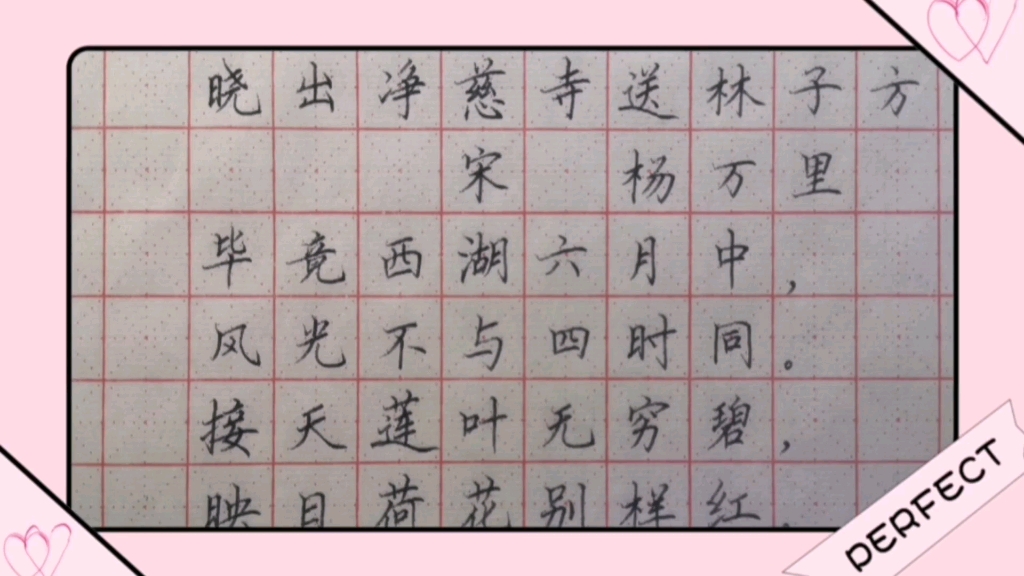 晓出净慈寺送林子方
宋 杨万里
毕竟西湖六月中，
风光不与四时同。
接天莲叶无穷碧，
映日荷花别样红.
PERFECT